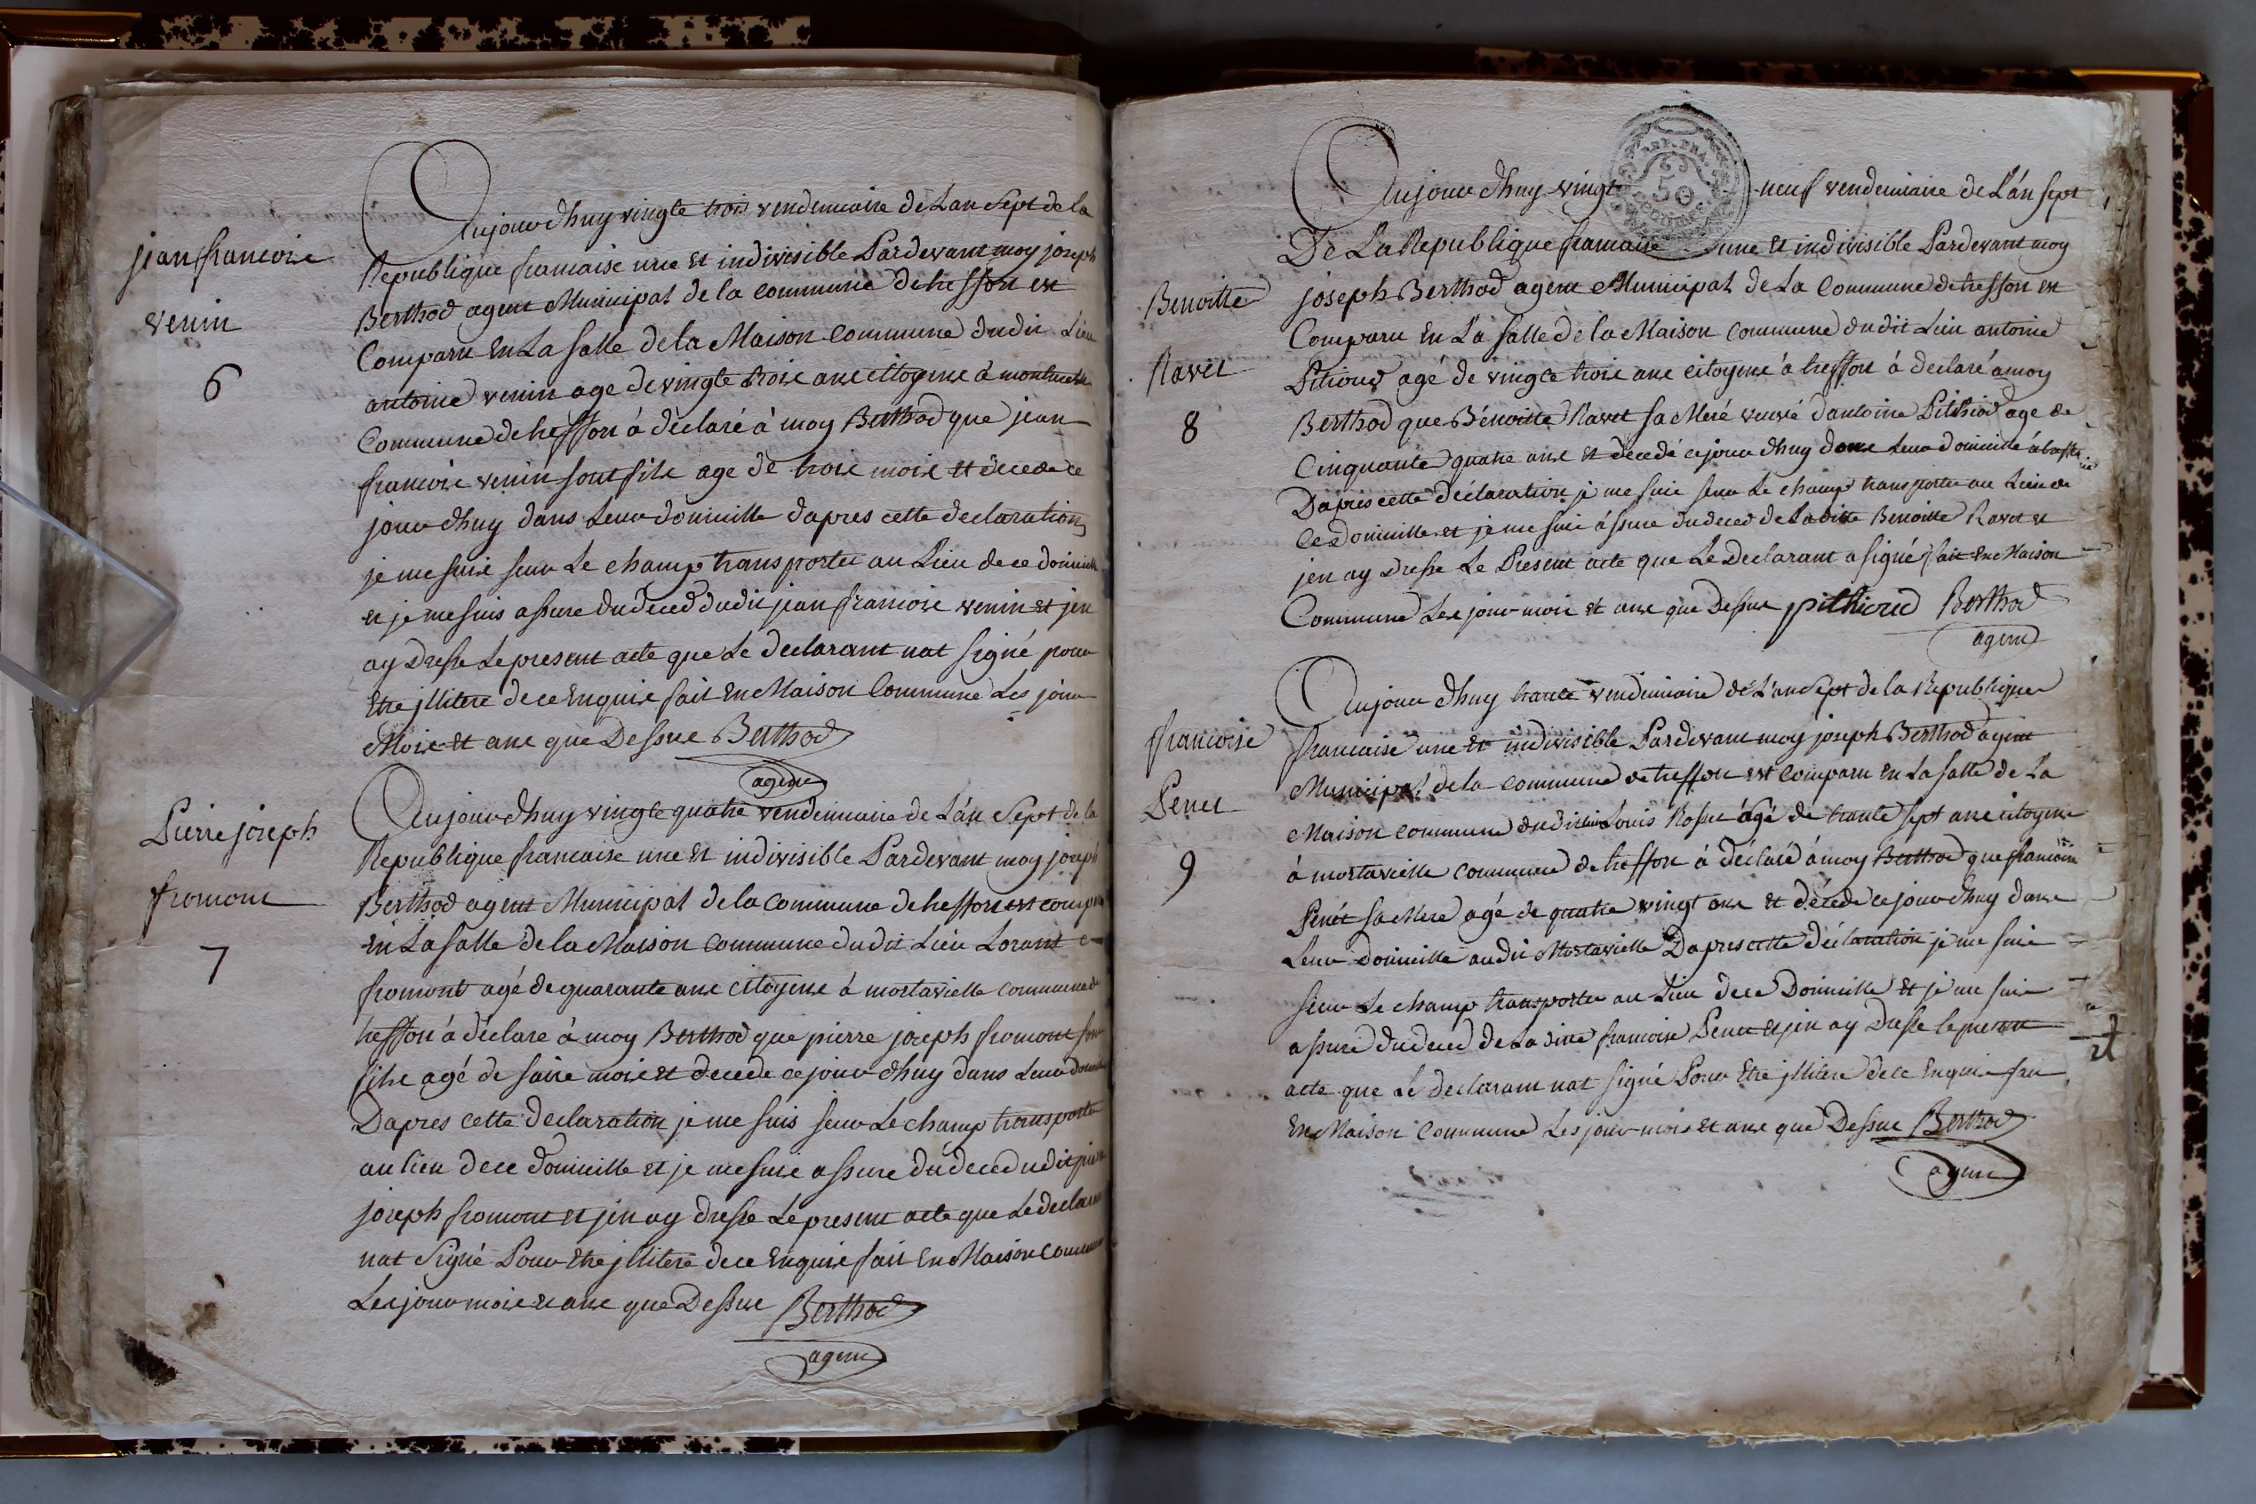 jean francoise
venin
6
Aujour dhuy vingte trois vendemiaire de Lan Sept de la
Republique francaise une et indivisible Pardevant moy joseph
Berthod agent Municipal de la commune de treffort est
Comparu En La salle de la Maison commune dudit Lieu
antoine venin age de vingte troix ans citoyens à
Commune de treffort à déclaré à moy Berthod que jean
francoise venin sont fils age de troix moix et decede ce
jour dhuy dans Leur domicille dapres cette declaration
je me suis seur Le champ transporter au Lieu de ce domicille
et je me suis assure du deced dudit jean francoise venin et jen
ay Dresse Le present acte que Le declarant nat signé pour
Etre jllitere de ce Enquis fait En Maison Commune Les jour
Moix et ans que Dessue Berthod
agent
Pierre joseph
fromont
7
Aujourdhuy vingte quatre vendemiaire de Lan Sept de la
Republique francaise une et indivisible Pardevant moy joseph
Berthod agent Municipal de la commune de treffort est comparu
En La salle de la Maison commune dudit Lieu Lorant
fromont agé de quarante ans citoyens à mortavielle commune de
treffort à déclare à moy Berthod que pierre joseph fromont son
fils agé de saire moix et decede ce jour dhuy dans Leur domicille
Dapres cette declaration je me suis seur Le champ transporter
au lieu de ce domicille et je me suis assure du deced dudit pierre
joseph fromont et jen ay dresse Le present acte que Le declarant
nat signé Pour Etre jllitere de ce Enquis fait En Maison commune
Les jour moix et ans que Dessue Berthod
agent
REP. FRA.
50
Benoitte
Ravet
8
Aujour dhuy vingt neuf vendemiaire de L'an sept
De La Republique francaise une et indivisible Pardevant moy
joseph Berthod agent Municipal de La Commune de treffort est
Comparu En La salle de la Maison commune dudit Lieu antoine
Pitioud agé de vingte troix ans citoyens à treffort à declaré à moy
Berthod que Bénoitte Ravet sa Meré veuve dantoine Pithiod age de
Cinquante quatre ans et décedé ce jour dhuy dans Leur domicille
Dapres cette déclaration je me suis seur Le champ transporter au Lieu de
Ce Domicille et je me suis assure du deced de Laditte Benoitte Ravet et
jen ay Dresse Le Present acte que Le Declarant a signé fait En Maison
Commune Les jour moix et ans que Dessue pithioud Berthod
agent
francoise
Penet
9
Aujour dhuy trante vendemiaire de Lan Sept de la Republique
francaise une et indivisible Pardevant moy joseph Berthod agent
Municipal de la commune de treffort est Comparu En La salle de La
Maison commune dudit Lieu Louis Rosset âgé de trante sept ans citoyens
à mortavielle commune de treffort à déclaré à moy Berthod que francoise
Penét sa Mere agé de quatre vingt ans et décede ce jour dhuy dans
Leur domicille audit Mortavielle Dapres cette déclaration je me suis
seur Le champ transporter au Lieu de ce Domicille et je me suis
assure du deced de La ditte francoise Penet et jen ay Dresse le present
acte que Le declarant nat signé Pour Etre jllitere de ce Enquis fait
En Maison Commune Les jour moix et ans que Dessue Berthod
agent